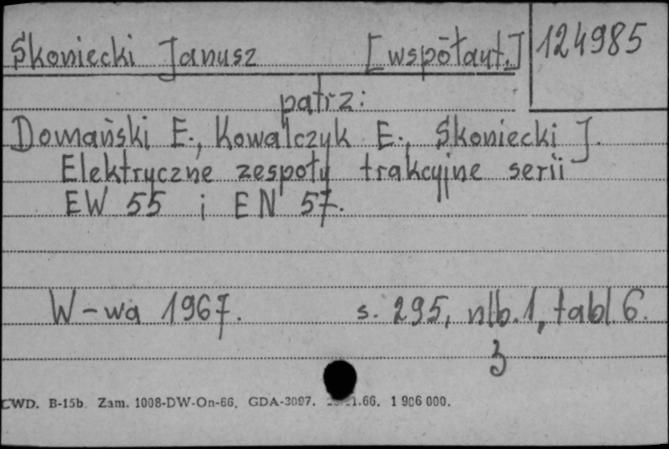 Skoniecki Janusz [współaut.] 124985
patrz:
Domański E., Kowalczyk E., Skoniecki J.
Elektryczne zespoły trakcyjne serii
EW 55 i EN 57.
W-wa 1967. s. 295, nlb. 1, tabl 6.
3
CWD. B-15b. Zam. 1008-DW-On-66. GDA-3097. 1 906 000.